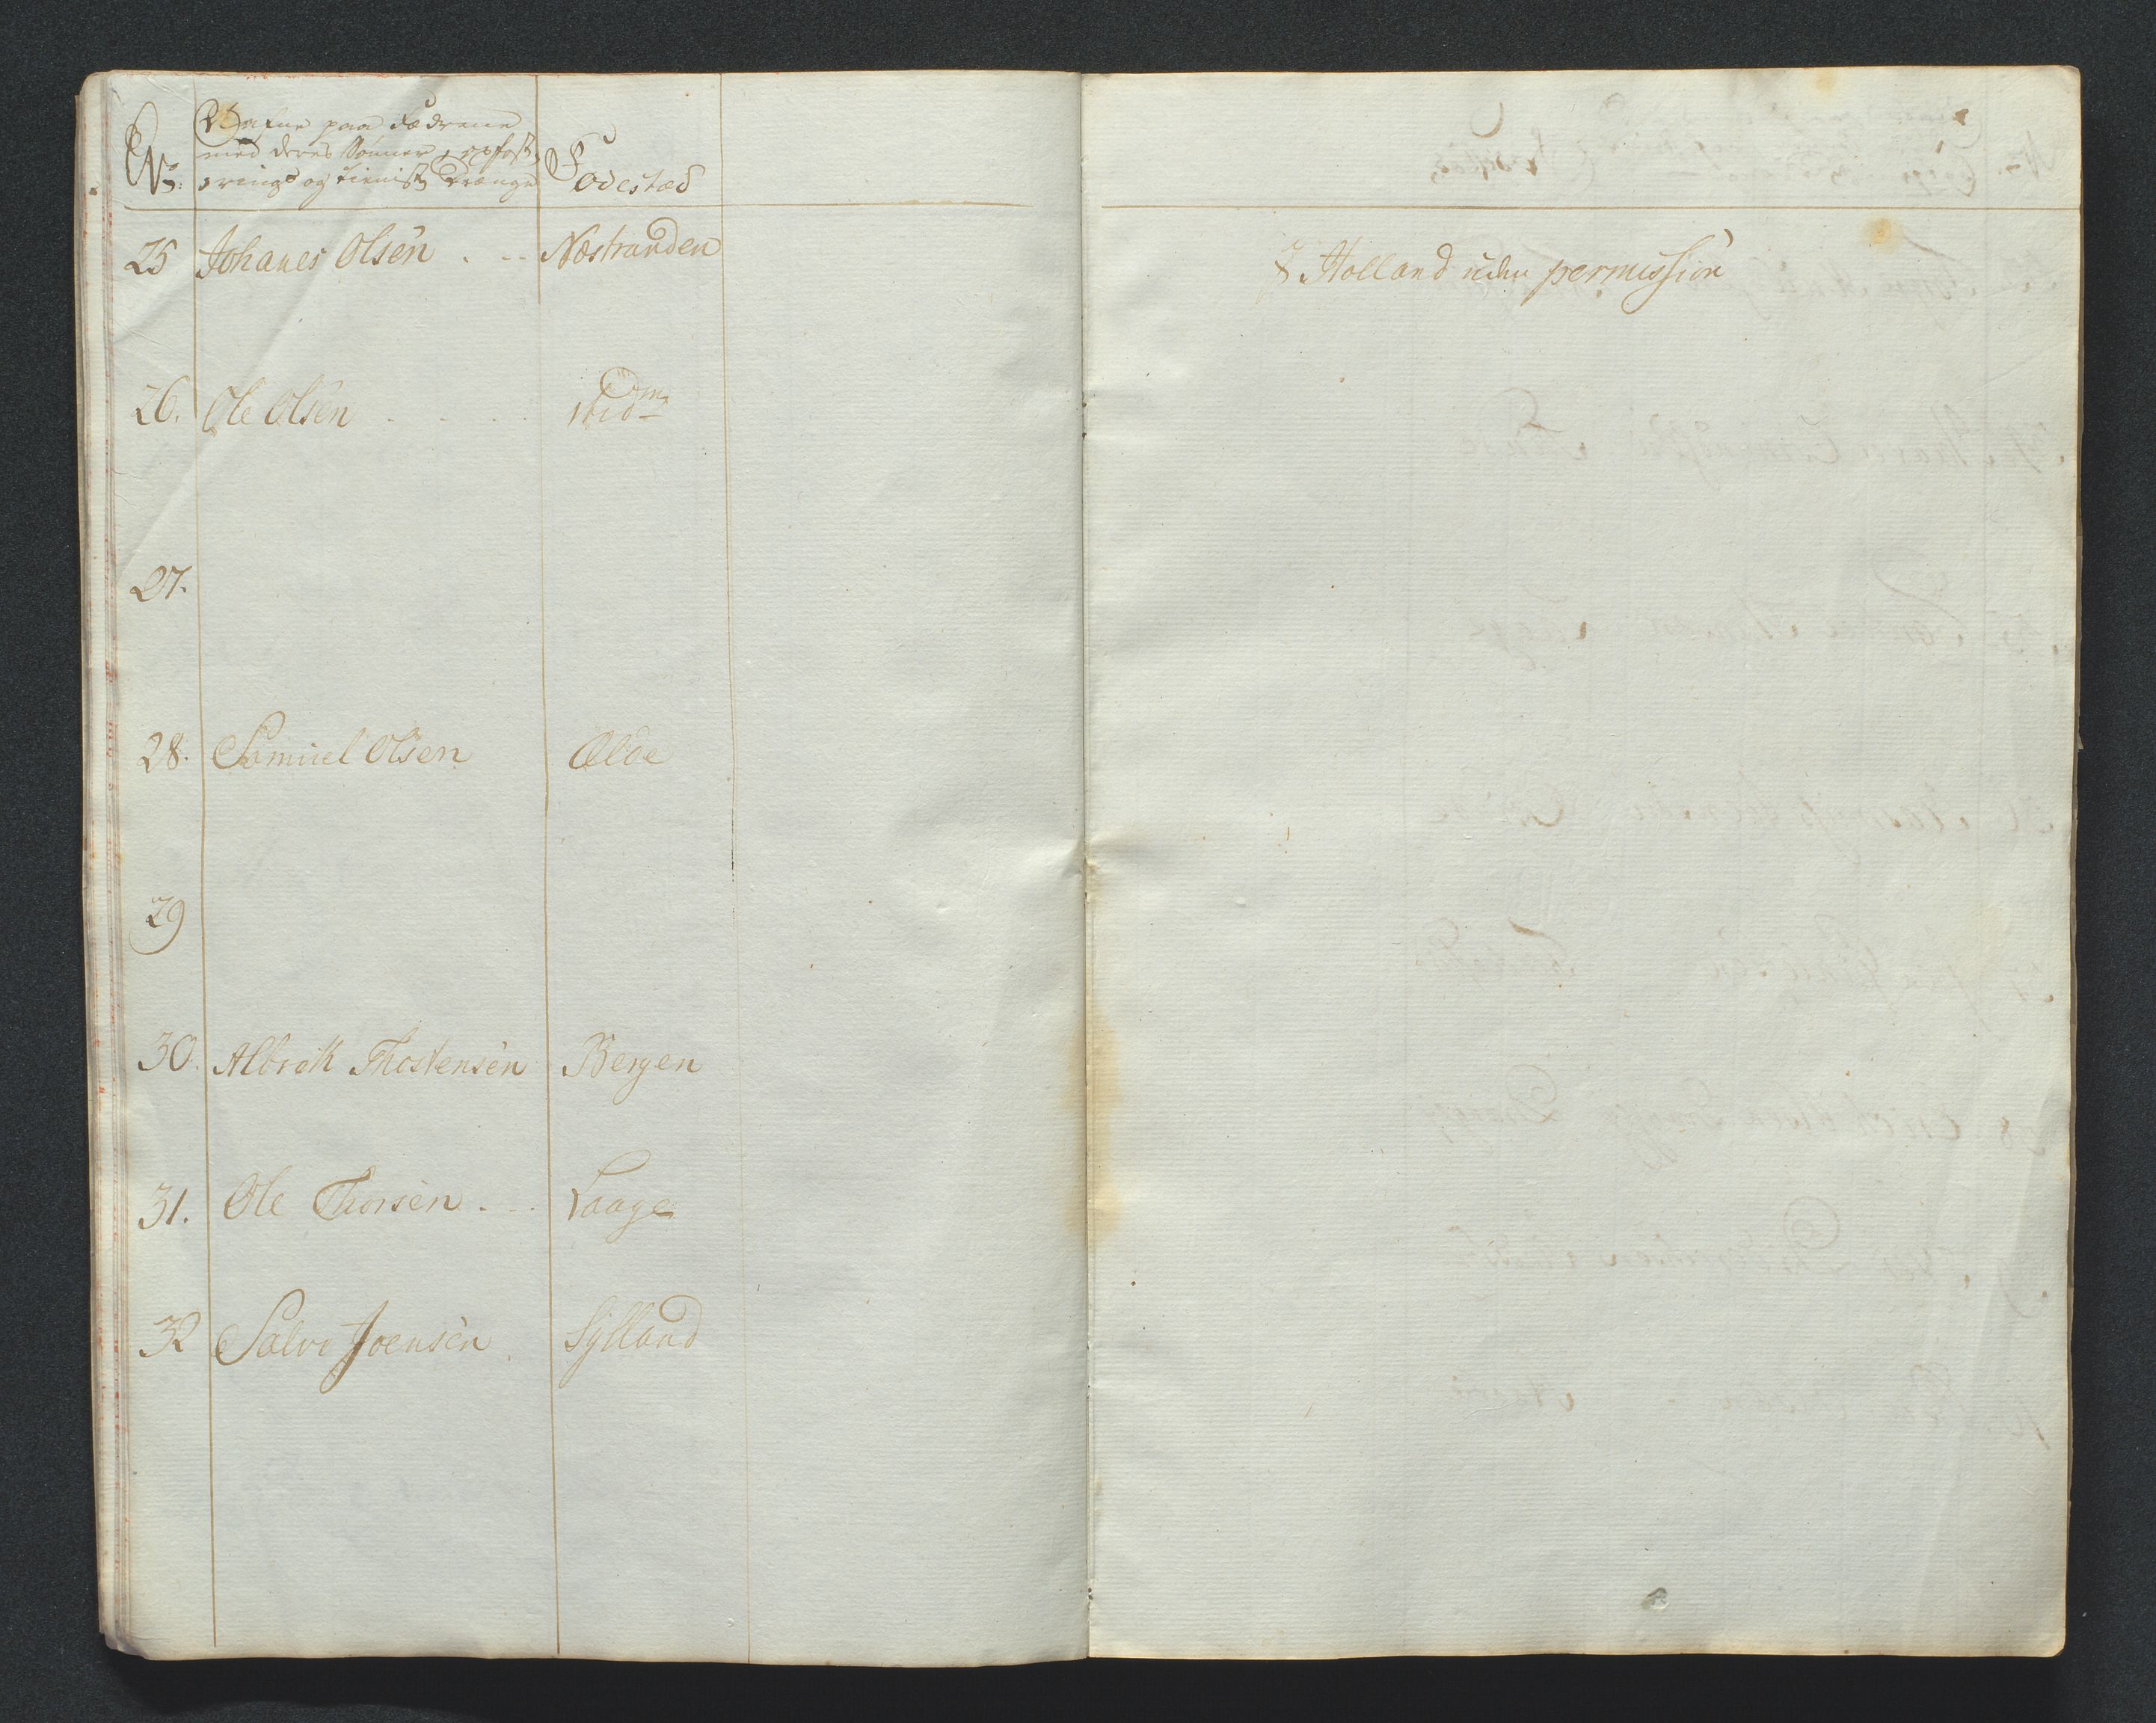 No: Nafne paa Fædrene
med deres Sönner, opfost-
rings og tienist Drænge Födestæd
25 Johanes Olsen . -- Næstranden I Holland uden permission
26. Ole Olsen . . . . ibidm
27.
28. Samuel Olsen Ælde
29
30. Albrekt Thostensen Bergen
31. Ole Thorsen . . . Laage
32 Salve Joensen . Sÿlland